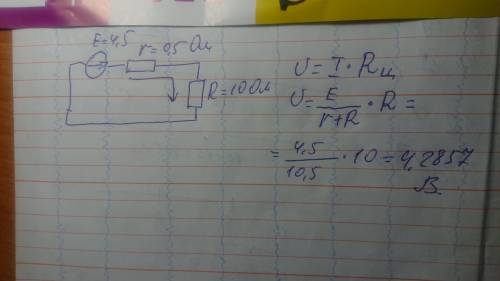 E=4,5
r=0,5 Ом
R=10 Ом
U = I · Rц
U = E/(r+R) · R =
= 4,5/10,5 · 10 = 4,2857
В.